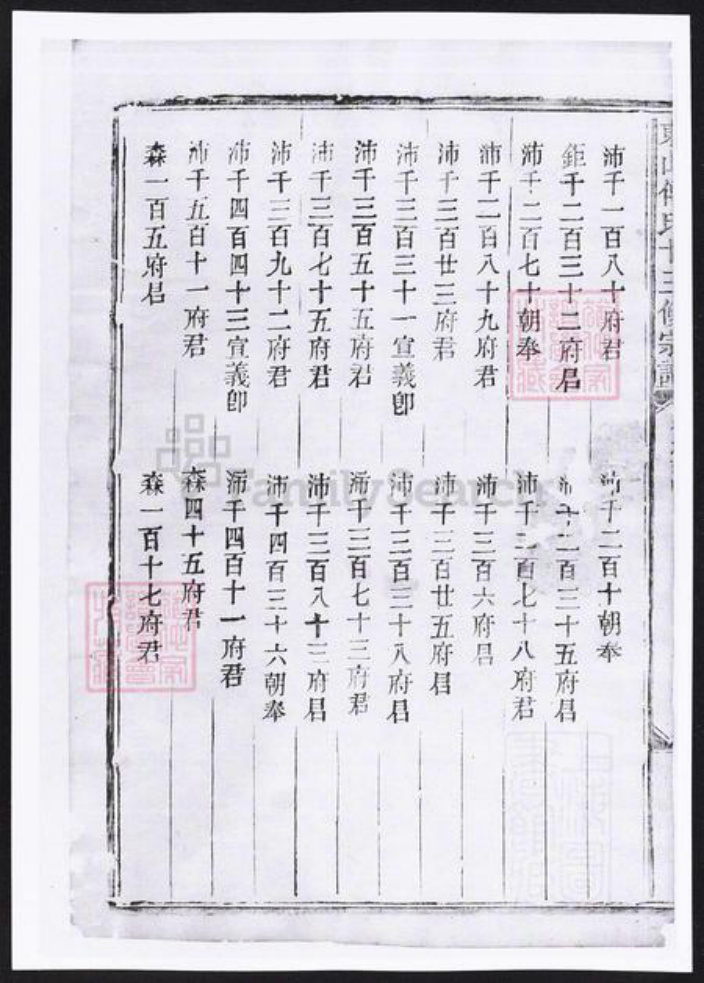 東山傅氏十三修宗譜
沛千一百八十府君
沛千二百十朝奉
鉅千二百三十二府君
沛千二百三十五府君
沛千二百七十朝奉
沛千二百七十八府君
沛千二百八十九府君
沛千三百六府君
沛千三百廿三府君
沛千三百廿五府君
沛千三百三十一宣義郎
沛千三百三十八府君
沛千三百五十五府君
沛千三百七十三府君
沛千三百七十五府君
沛千三百八十三府君
沛千三百九十二府君
沛千四百三十六朝奉
沛千四百四十三宣義郎
沛千四百十一府君
沛千五百十一府君
森四十五府君
森一百五府君
森一百十七府君
FamilySearch